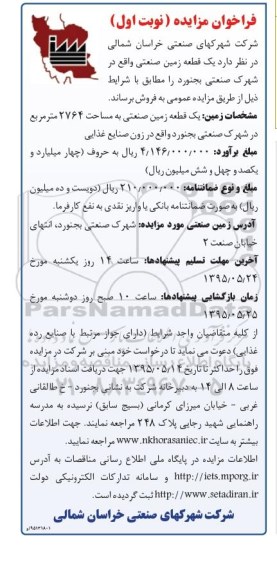 فراخوان مزایده ( نوبت اول )
شرکت شهرکهای صنعتی خراسان شمالی
در نظر دارد یک قطعه زمین صنعتی واقع در
شهرک صنعتی بجنورد را مطابق با شرایط
ذیل از طریق مزایده عمومی به فروش برساند.
مشخصات زمین: یک قطعه زمین صنعتی به مساحت ۲۷۶۴ مترمربع
در شهرک صنعتی بجنورد واقع در زون صنایع غذایی
مبلغ برآورد: ۴/۱۴۶/۰۰۰/۰۰۰ ریال به حروف (چهار میلیارد و
یکصد و چهل و شش میلیون ریال)
مبلغ و نوع ضمانتنامه: ۲۱۰/۰۰۰/۰۰۰ ریال (دویست و ده میلیون
ریال) به صورت ضمانتنامه بانکی یا واریز نقدی به نفع کارفرما.
آدرس زمین صنعتی مورد مزایده: شهرک صنعتی بجنورد، انتهای
خیابان صنعت ۲
آخرین مهلت تسلیم پیشنهادها: ساعت ۱۴ روز یکشنبه مورخ
۱۳۹۵/۰۵/۲۴
زمان بازگشایی پیشنهادها: ساعت ۱۰ صبح روز دوشنبه مورخ
۱۳۹۵/۰۵/۲۵
از کلیه متقاضیان واجد شرایط (دارای جواز مرتبط با صنایع رده
غذایی) دعوت می نماید تا درخواست خود مبنی بر شرکت در مزایده
فوق را حداکثر تا تاریخ ۱۳۹۵/۰۵/۱۴ جهت دریافت اسناد مزایده از
ساعت ۸ الی ۱۴ به دبیرخانه شرکت به نشانی بجنورد - خ طالقانی
غربی - خیابان میرزای کرمانی (بسیج سابق) نرسیده به مدرسه
راهنمایی شهید رجایی پلاک ۲۴۸ مراجعه نمایند. جهت اطلاعات
بیشتر به سایت www.nkhorasaniec.ir مراجعه نمایید.
اطلاعات مزایده در پایگاه ملی اطلاع رسانی مناقصات به آدرس
http://iets.mporg.ir و سامانه تدارکات الکترونیکی دولت
http://www.setadiran.ir ثبت گردیده است.
شرکت شهرکهای صنعتی خراسان شمالی